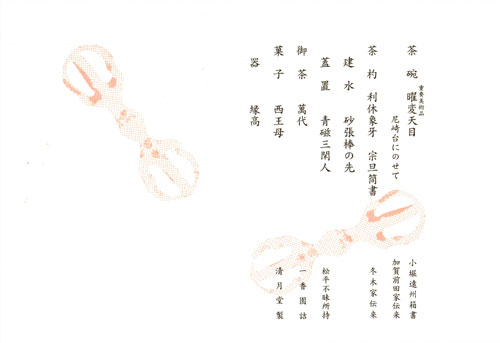 茶碗 重要美術品 曜変天目 小堀遠州箱書
尼崎台にのせて 加賀前田家伝来
茶杓 利休象牙 宗旦筒書 冬木家伝来
建水 砂張棒の先
蓋置 青磁三閑人 松平不昧所持
御茶 萬代 一番園詰
菓子 西王母 清月堂製
器 縁高